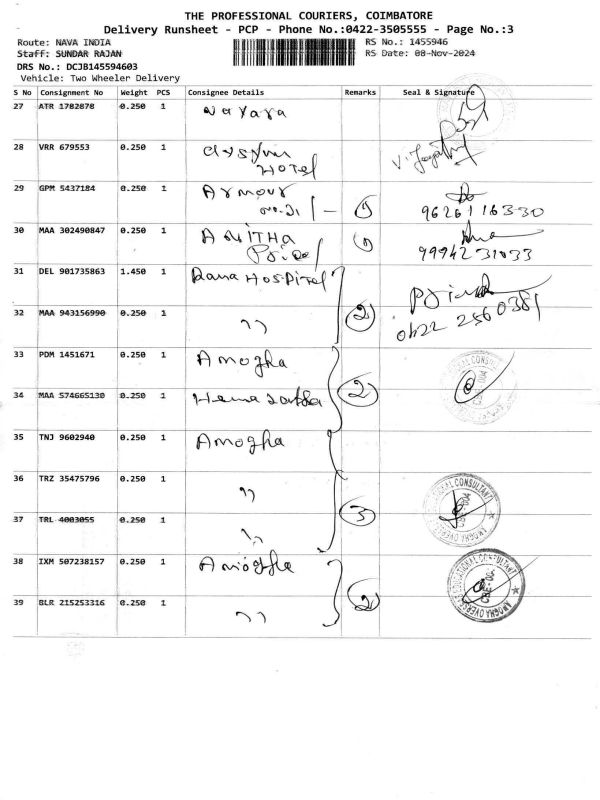 THE PROFESSIONAL COURIERS, COIMBATORE
Delivery Runsheet - PCP - Phone No.:0422-3505555 - Page No.:3
Route: NAVA INDIA
RS No.: 1455946
Staff: SUNDAR RAJAN
RS Date: 08-Nov-2024
DRS No.: DCJB145594603
Vehicle: Two Wheeler Delivery
S No Consignment No Weight PCS Consignee Details Remarks Seal & Signature
27 ATR 1782878 0.250 1 Nayara
28 VRR 679553 0.250 1 Hotel
29 GPM 5437184 0.250 1 Armour 1 9626116330
30 MAA 302490847 0.250 1 ANITHA 1 9994231033
31 DEL 901735863 1.450 1 Rama HOSPITel
32 MAA 943156990 0.250 1 " 2 0422 2560381
33 PDM 1451671 0.250 1 Amogha
34 MAA 574665130 0.250 1 Hema 2
35 TNJ 9602940 0.250 1 Amogha
36 TRZ 35475796 0.250 1 "
37 TRL 4003055 0.250 1 " 3
38 IXM 507238157 0.250 1 Amogha
39 BLR 215253316 0.250 1 " 2
AMOGHA OVERSEAS EDUCATIONAL CONSULTANT
CBE-004